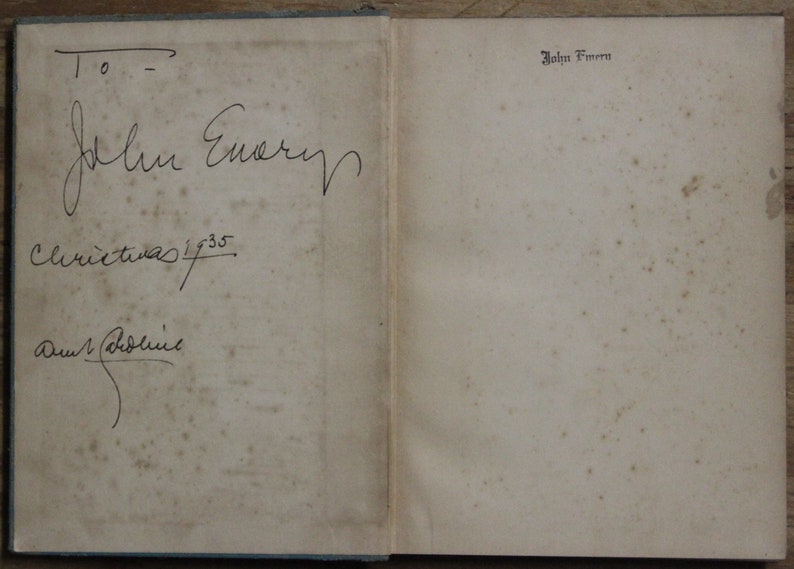 To -
John Emory
Christmas 1935
Aunt Caroline
John Emery